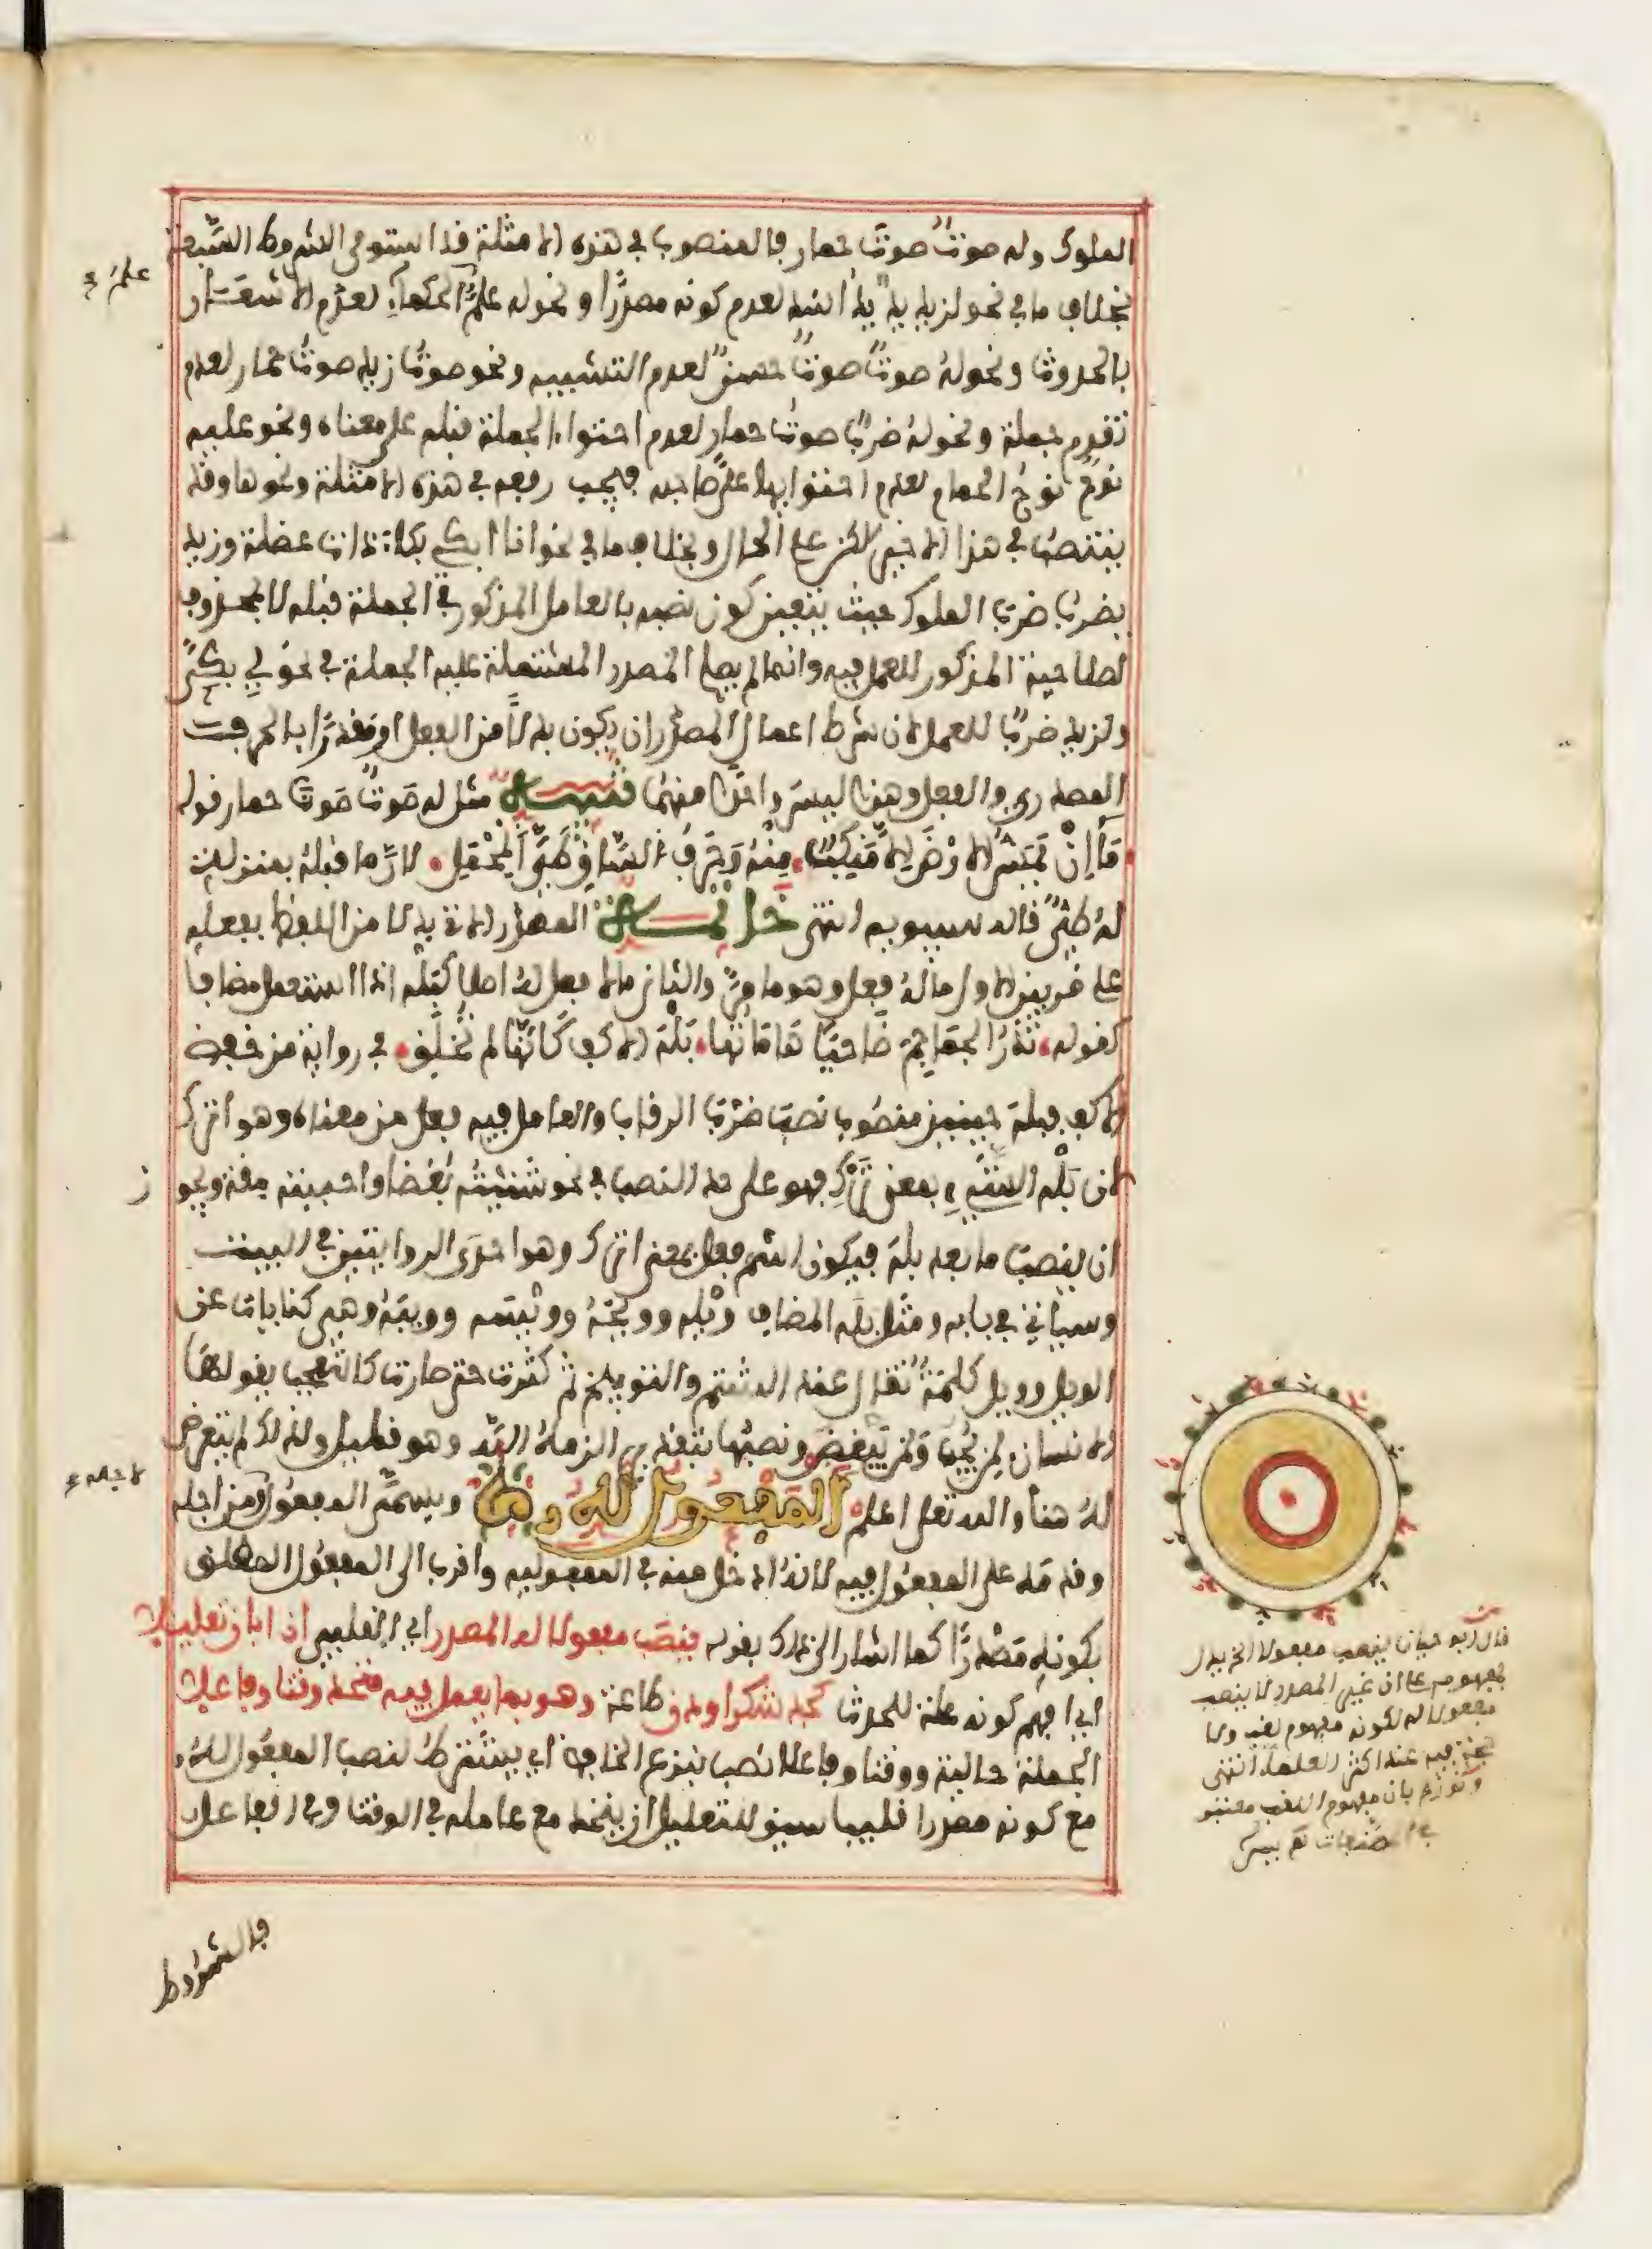 الملوك وله صوت صوت حمار فالمنصوب في هذه الامثلة قد استوفى الشروط السبعة
بخلاف ما في نحو لزيد يد يد اسد لعدم كونه مصدرا ونحو له علم علم الحكماء لعدم الاشعار
بالحدوث ونحو له صوت صوت حسن لعدم التشبيه ونحو صوت زيد صوت حمار لعدم
تقدم جملة ونحو له ضرب صوت حمار لعدم احتواء الجملة قبله على معناه ونحو عليه
نوح نوح الحمام لعدم احتوايها على صاحبه فيجب رفعه في هذه الامثلة ونحوها وقد
ينتصب في هذا الاخير لكن على الحال وبخلاف ما في نحو انا ابكي بكاء ذات عضلة وزيد
يضرب ضرب الملوك حيث يتعين كون نصبه بالعامل المذكور في الجملة قبله لا بمحذوف
لصلاحية المذكور للعمل فيه وانما لم يصلح المصدر المشتملة عليه الجملة في نحو لي بكى
ولزيد ضرب للعمل لان شرط اعمال المصدر ان يكون بدلا من الفعل او مقدرا بالحرف
المصدري والفعل وهذا ليس واحدا منهما تنبيه مثل له صوت صوت حمار قوله
ما ان يمس الارض الا منكب منه وحرف الساق طي المحمل لان ما قبله بمنزلة
له طي قاله سيبويه انتهى خاتمة المصدر الاتي بدلا من اللفظ بفعله
على ضربين الاول ما له فعل وهو ما مر والثاني ما لا فعل له اصلا كبله اذا استعمل مضافا
كقوله تذر الجماجم ضاحيا هاماتها بله الاكف كانها لم تخلق في رواية من خفض
الاكف فبله حينئذ منصوب نصب ضرب الرقاب والعامل فيه فعل من معناه وهو اترك
لان بله الشيء بمعنى ترك فهو على حد النصب في نحو شنئته بغضا واحببته مقة ويجوز
ان ينصب ما بعد بله فيكون اسم فعل بمعنى اترك وهو احدى الروايتين في البيت
وسياتي في بابه ومثل بله المضاف ويله وويحه وويبه وويسه وهي كنايات عن
الويل وويل كلمة تقال عند الشتم والتوبيخ ثم كثرت حتى صارت كالتعجب يقولها
الانسان لمن يحب ولمن يبغض ونصبها بتقدير الزمه الله وهو قليل ولذلك لم يتعرض
له هنا والله تعلى اعلم المفعول له ويسمى المفعول لاجله ومن اجله
وقدمه على المفعول فيه لانه ادخل منه في المفعولية واقرب الى المفعول المطلق
بكونه مصدرا كما اشار الى ذلك بقوله ينصب مفعولا له المصدر اي القلبي ان ابان تعليلا
اي افهم كونه علة للحدث كجد شكرا ودن طاعة وهو بما يعمل فيه متحد وقتا وفاعلا
الجملة حالية ووقتا وفاعلا نصب بنزع الخافض اي يشترط لنصب المفعول له
مع كونه مصدرا قلبيا سيق للتعليل ان يتحد مع عامله في الوقت وفي الفاعل
فالشروط
قال ابو حيان ينصب مفعولا الخ يدل
بمفهومه على ان غير المصدر لا ينصب
مفعولا له لكونه مفهوم لقب ولا
حجة فيه عند اكثر العلماء انتهى
ونوزع بان مفهوم اللقب معتبر